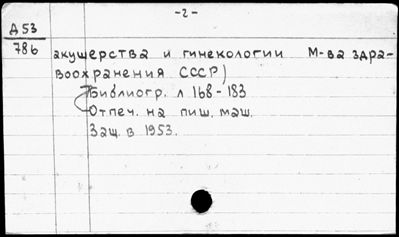 -2-
Д53
786
акушерства и гинекологии М-ва здра-
воохранения СССР)
Библиогр. л 168-183
Отпеч. на пиш. маш.
Защ. в 1953.